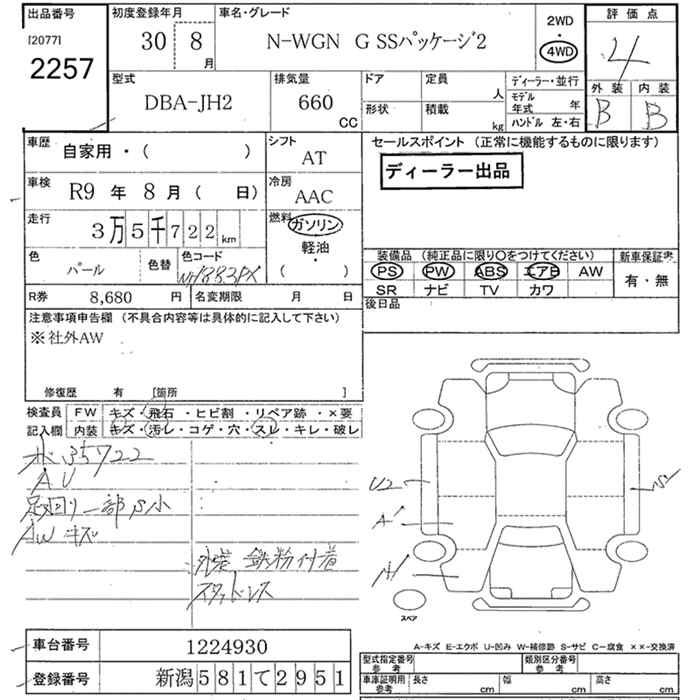 出品番号
[2077]
2257
初度登録年月
30 8 月
車名・グレード
N-WGN G SSパッケージ2
2WD
・
4WD
評価点
4
外装 内装
B B
型式
DBA-JH2
排気量
660
CC
ドア
形状
定員
人
積載
kg
ディーラー・並行
モデル年式 年
ハンドル 左・右
車歴
自家用・( )
シフト
AT
車検
R9 年 8 月 ( 日)
冷房
AAC
走行
3万5千722 km
燃料
ガソリン
軽油
・
( )
色
パール
色替
色コード
NH883PX
R券 8,680 円
名変期限 月 日
セールスポイント (正常に機能するものに限ります)
ディーラー出品
装備品 (純正品に限り〇をつけてください)
PS PW ABS エアB AW
SR ナビ TV カワ
新車保証書
有・無
後日品
注意事項申告欄 (不具合内容等は具体的に記入して下さい)
※社外AW
修復歴 有 [箇所 ]
検査員記入欄
FW キズ・飛石・ヒビ割・リペア跡・×要
内装 キズ・汚レ・コゲ・穴・スレ・キレ・破レ
35722
AU
足回り一部S小
AWキズ
外装 鉄粉付着
スタッドレス
U2
A1
A1
スペア
A-キズ E-エクボ U-凹み W-補修跡 S-サビ C-腐食 ××-交換済
車台番号 1224930
登録番号 新潟581て2951
型式指定番号
参考
類別区分番号
参考
車庫証明用
参考
長さ cm
幅 cm
高さ cm